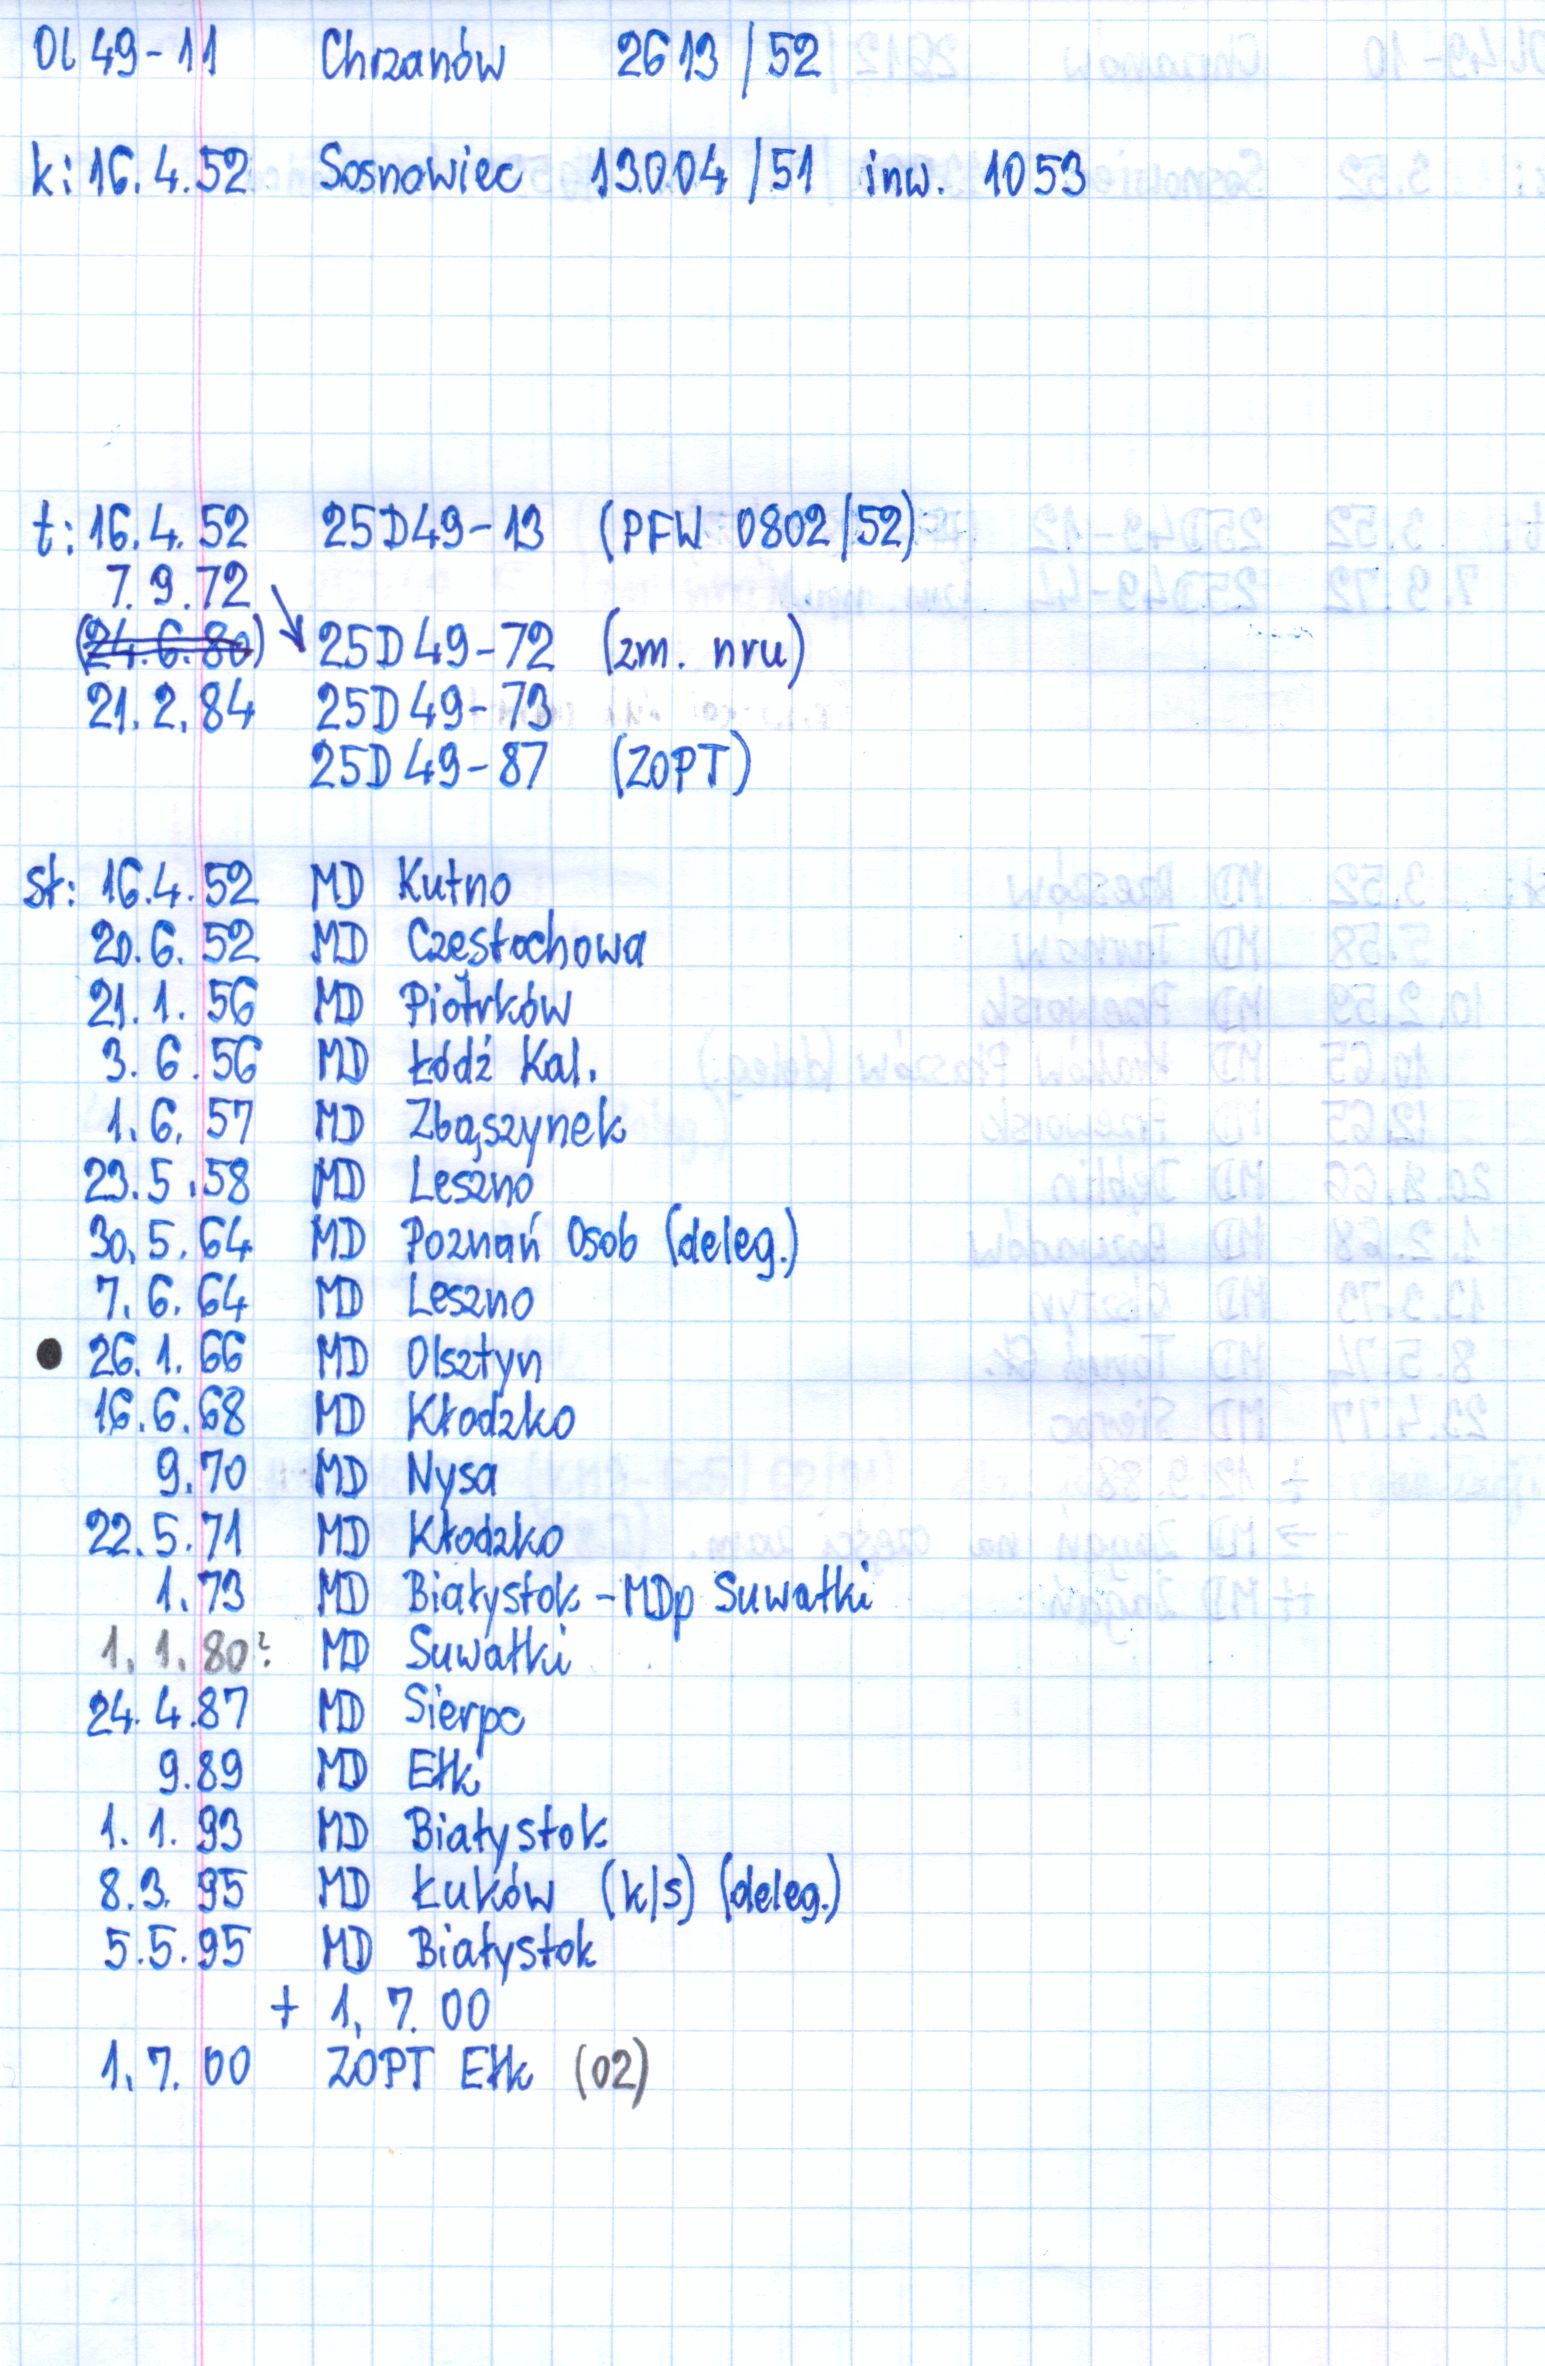 Ol 49-11 Chrzanów 2613/52
k: 16.4.52 Sosnowiec 13004/51 inw. 1053
t: 16.4.52 25D49-13 (PFW 0802/52)
7.9.72
(24.6.80) 25D49-72 (zm. nru)
21.2.84 25D49-73
25D49-87 (ZOPT)
st: 16.4.52 MD Kutno
20.6.52 MD Częstochowa
21.1.56 MD Piotrków
3.6.56 MD Łódź Kal.
1.6.57 MD Zbąszynek
23.5.58 MD Leszno
30.5.64 MD Poznań Osob (deleg.)
7.6.64 MD Leszno
● 26.1.66 MD Olsztyn
16.6.68 MD Kłodzko
9.70 MD Nysa
22.5.71 MD Kłodzko
1.73 MD Białystok - MDp Suwałki
1.1.80? MD Suwałki
24.4.87 MD Sierpc
9.89 MD Ełk
1.1.93 MD Białystok
8.3.95 MD Łuków (k/s) (deleg.)
5.5.95 MD Białystok
+ 1.7.00
1.7.00 ZOPT Ełk (02)